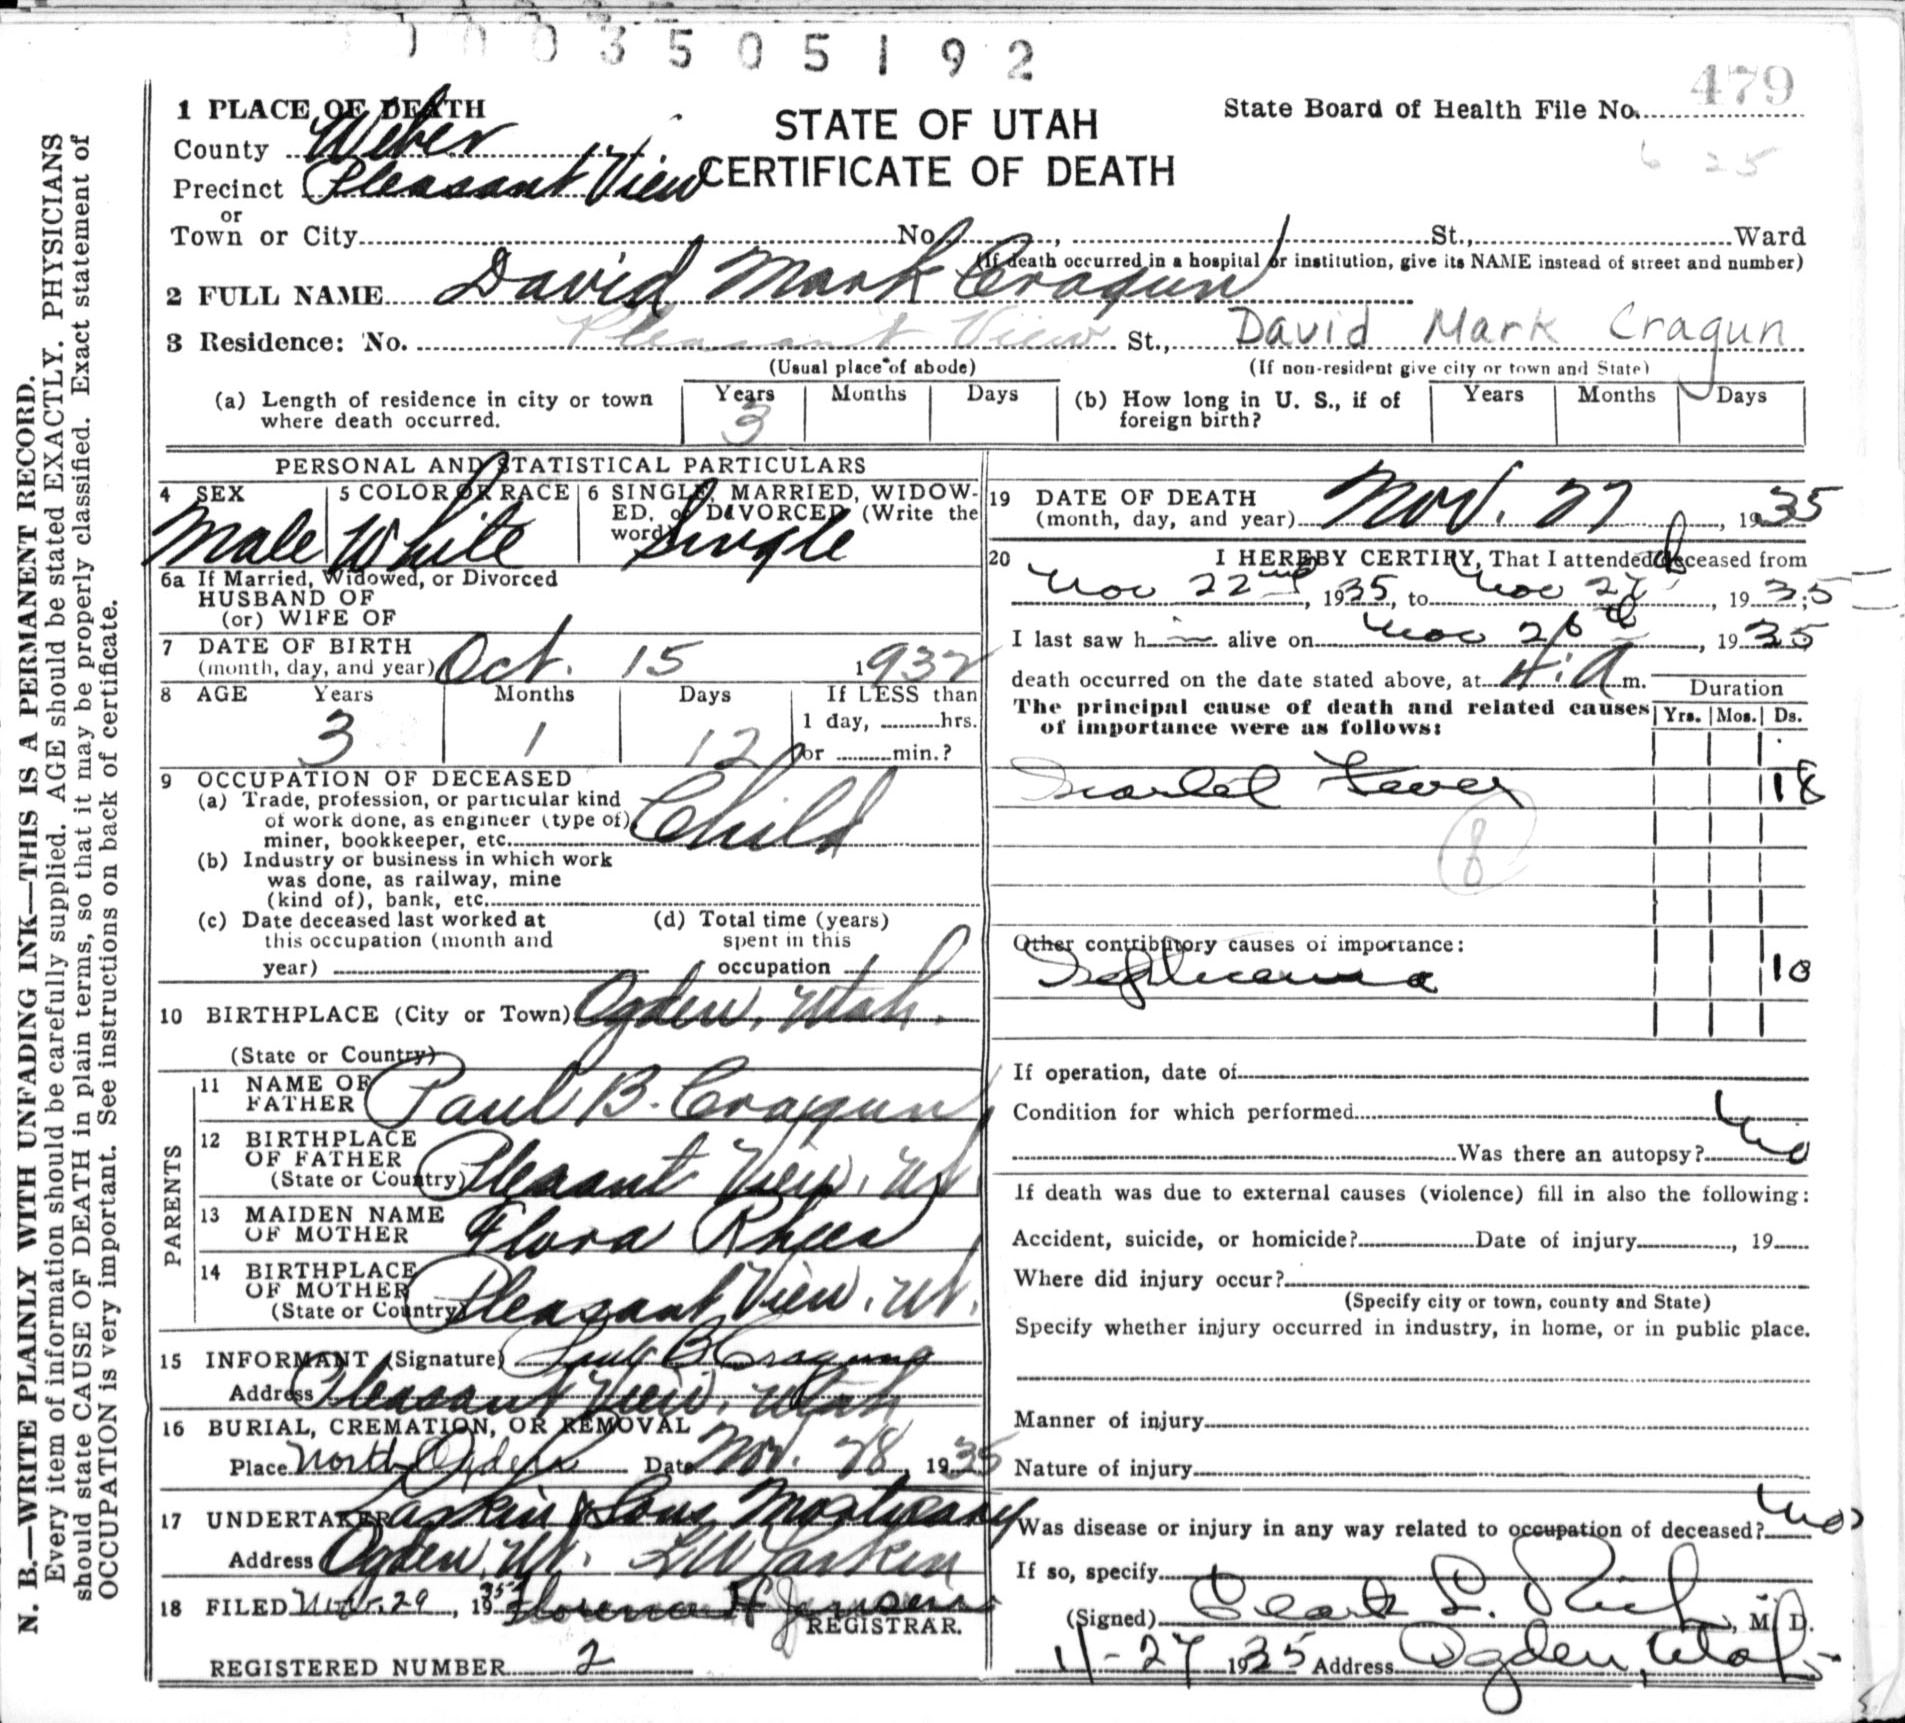 0003505192
479
1 PLACE OF DEATH
STATE OF UTAH
State Board of Health File No.
County Weber
CERTIFICATE OF DEATH
6 25
Precinct Pleasant View
or
Town or City No , St., Ward
(If death occurred in a hospital or institution, give its NAME instead of street and number)
2 FULL NAME David Mark Cragun
3 Residence: No. Pleasant View St., David Mark Cragun
(Usual place of abode) (If non-resident give city or town and State)
(a) Length of residence in city or town where death occurred. Years 3 Months Days
(b) How long in U. S., if of foreign birth? Years Months Days
PERSONAL AND STATISTICAL PARTICULARS
4 SEX Male
5 COLOR OR RACE White
6 SINGLE, MARRIED, WIDOW-
ED, or DIVORCED (Write the
word) Single
6a If Married, Widowed, or Divorced
HUSBAND OF
(or) WIFE OF
7 DATE OF BIRTH
(month, day, and year) Oct. 15 1932
8 AGE Years Months Days If LESS than
3 1 12 1 day, hrs.
or min.?
9 OCCUPATION OF DECEASED
(a) Trade, profession, or particular kind
of work done, as engineer (type of)
miner, bookkeeper, etc. Child
(b) Industry or business in which work
was done, as railway, mine
(kind of), bank, etc.
(c) Date deceased last worked at
this occupation (month and
year)
(d) Total time (years)
spent in this
occupation
10 BIRTHPLACE (City or Town) Ogden, Utah.
(State or Country)
PARENTS
11 NAME OF
FATHER Paul B. Cragun
12 BIRTHPLACE
OF FATHER
(State or Country) Pleasant View, Ut.
13 MAIDEN NAME
OF MOTHER Flora Rhees
14 BIRTHPLACE
OF MOTHER
(State or Country) Pleasant View, Ut.
15 INFORMANT (Signature) Paul B Cragun
Address Pleasant View, Utah
16 BURIAL, CREMATION, OR REMOVAL
Place North Ogden Date Nov. 28, 1935
17 UNDERTAKER Larkin & Sons Mortuary
Address Ogden, Ut. Larkin
18 FILED Nov. 29, 1935 Florence Jensen
REGISTRAR.
REGISTERED NUMBER 2
19 DATE OF DEATH
(month, day, and year) Nov. 27, 1935
20 I HEREBY CERTIFY, That I attended deceased from
Nov 22nd, 1935, to Nov 27, 1935
I last saw him alive on Nov 26th, 1935
death occurred on the date stated above, at 4:A m.
Duration
The principal cause of death and related causes
of importance were as follows: Yrs. Mos. Ds.
Scarlet Fever 18
8
Other contributory causes of importance:
Septicemia 10
If operation, date of
Condition for which performed
Was there an autopsy? No
If death was due to external causes (violence) fill in also the following:
Accident, suicide, or homicide? Date of injury , 19
Where did injury occur?
(Specify city or town, county and State)
Specify whether injury occurred in industry, in home, or in public place.
Manner of injury
Nature of injury
Was disease or injury in any way related to occupation of deceased? No
If so, specify
(Signed) L. Rich, M. D.
11-27 1935 Address Ogden, Utah
N. B.—WRITE PLAINLY WITH UNFADING INK—THIS IS A PERMANENT RECORD.
Every item of information should be carefully supplied. AGE should be stated EXACTLY. PHYSICIANS
should state CAUSE OF DEATH in plain terms, so that it may be properly classified. Exact statement of
OCCUPATION is very important. See instructions on back of certificate.